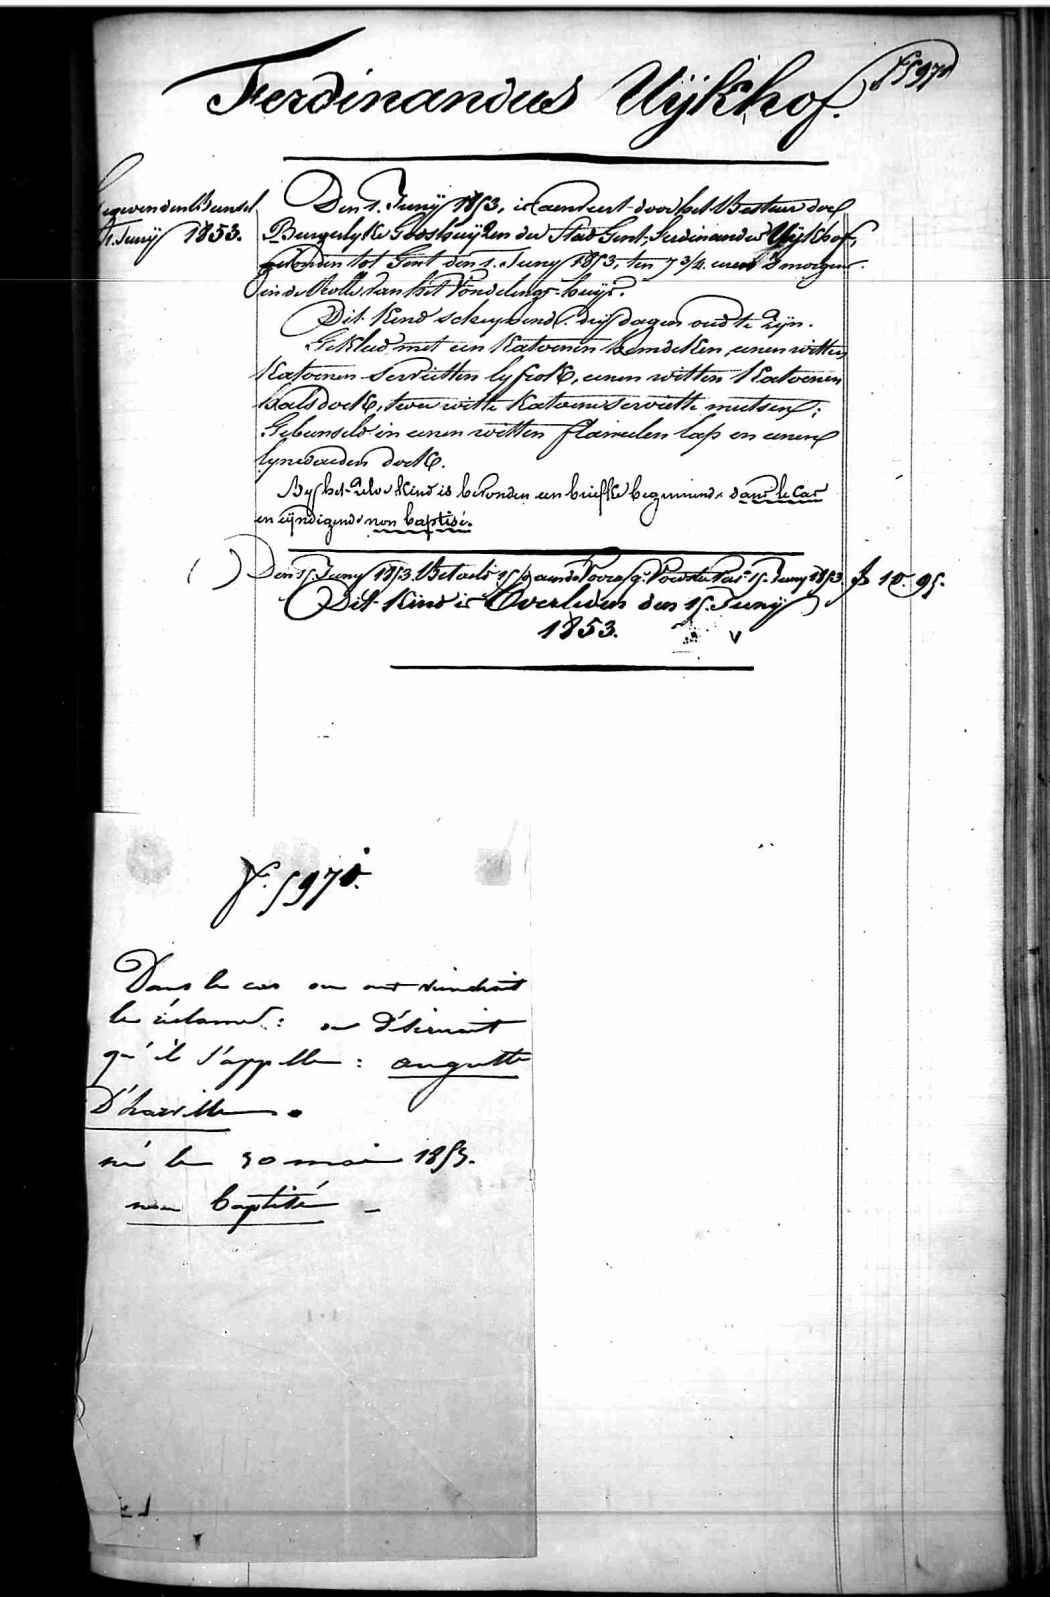 Ferdinandus Uijkhof.
N. 5970
Gegeven den Bunsel
1. Junij 1853.
Den 1. Junij 1853, is aenveert door het Bestuer der
Burgerlyke Godshuijzen der Stad Gent, Ferdinandus Uijkhof,
gevonden tot Gent den 1. Juny 1853, ten 7 3/4 uren 's morgens
in de Rolle van het Vondelings-huijs.
Dit Kind scheynende drij dagen oud te zijn.
Gekleed met een Katoenen hemdeken, eenen witten
Katoenen servietten lyfrok, eenen witten Katoenen
halsdoek, twee witte Katoene serviette mutsen;
Gebunseld in eenen witten flanelen lap en eenen
lynwaeden doek.
By het zelve Kind is bevonden een briefke beginnende dans le cas
en eijndigende non baptisé.
Den 15 Juny 1853 Betaeld 15 aen de Juny 1853 f 10. 95.
Dit Kind is Overleden den 15. Junij
1853.
N. 5970.
Dans le cas ou on viendrait
le réclamer: on
qu'il s'appelle: auguste
D'harville.
né le 30 mai 1853.
non baptisé